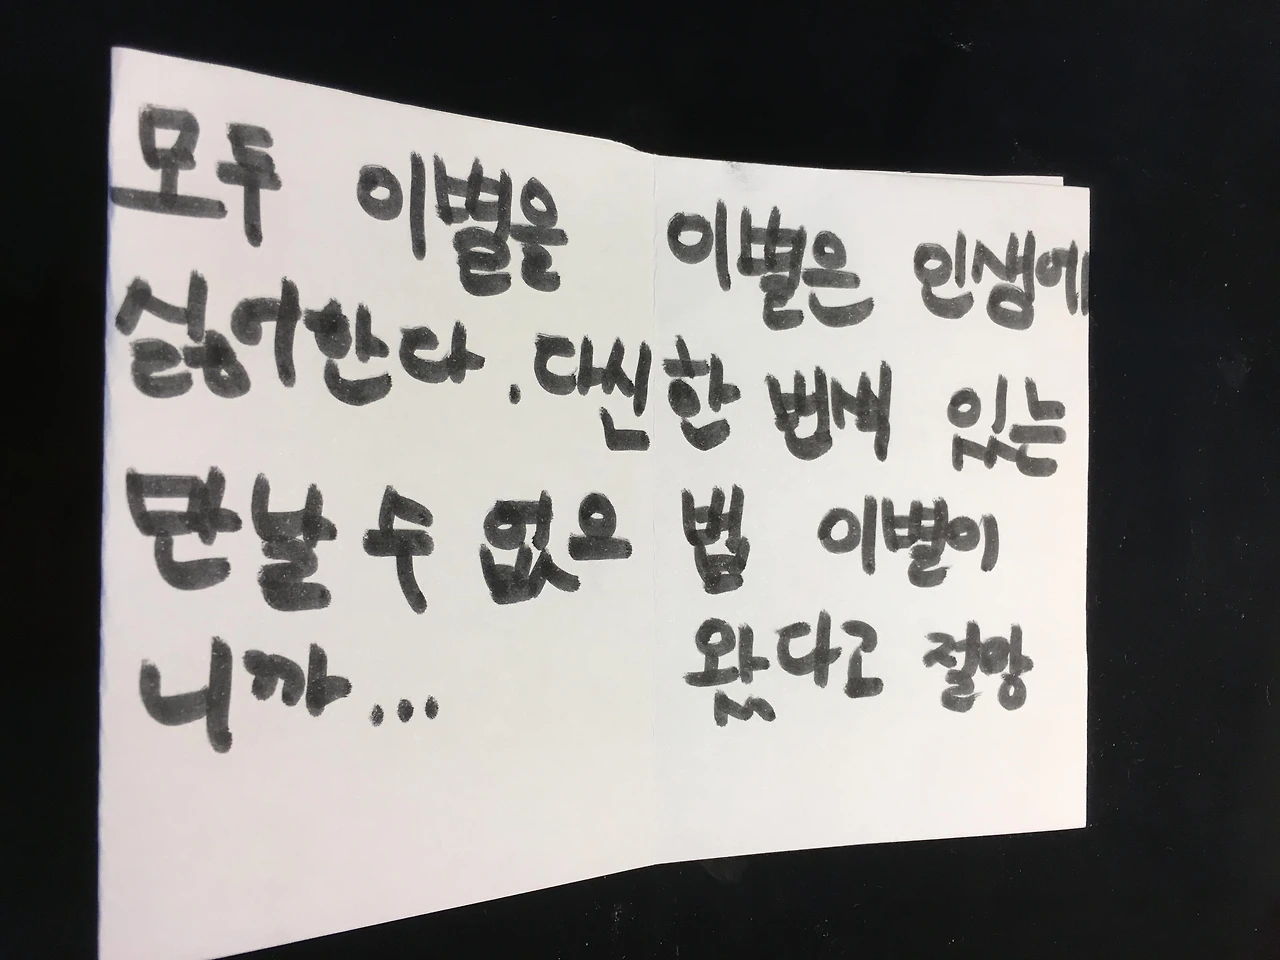 모두 이별을
싫어한다. 다신
만날 수 없으
니까...
이별은 인생에
한 번씩 있는
법 이별이
왔다고 절망